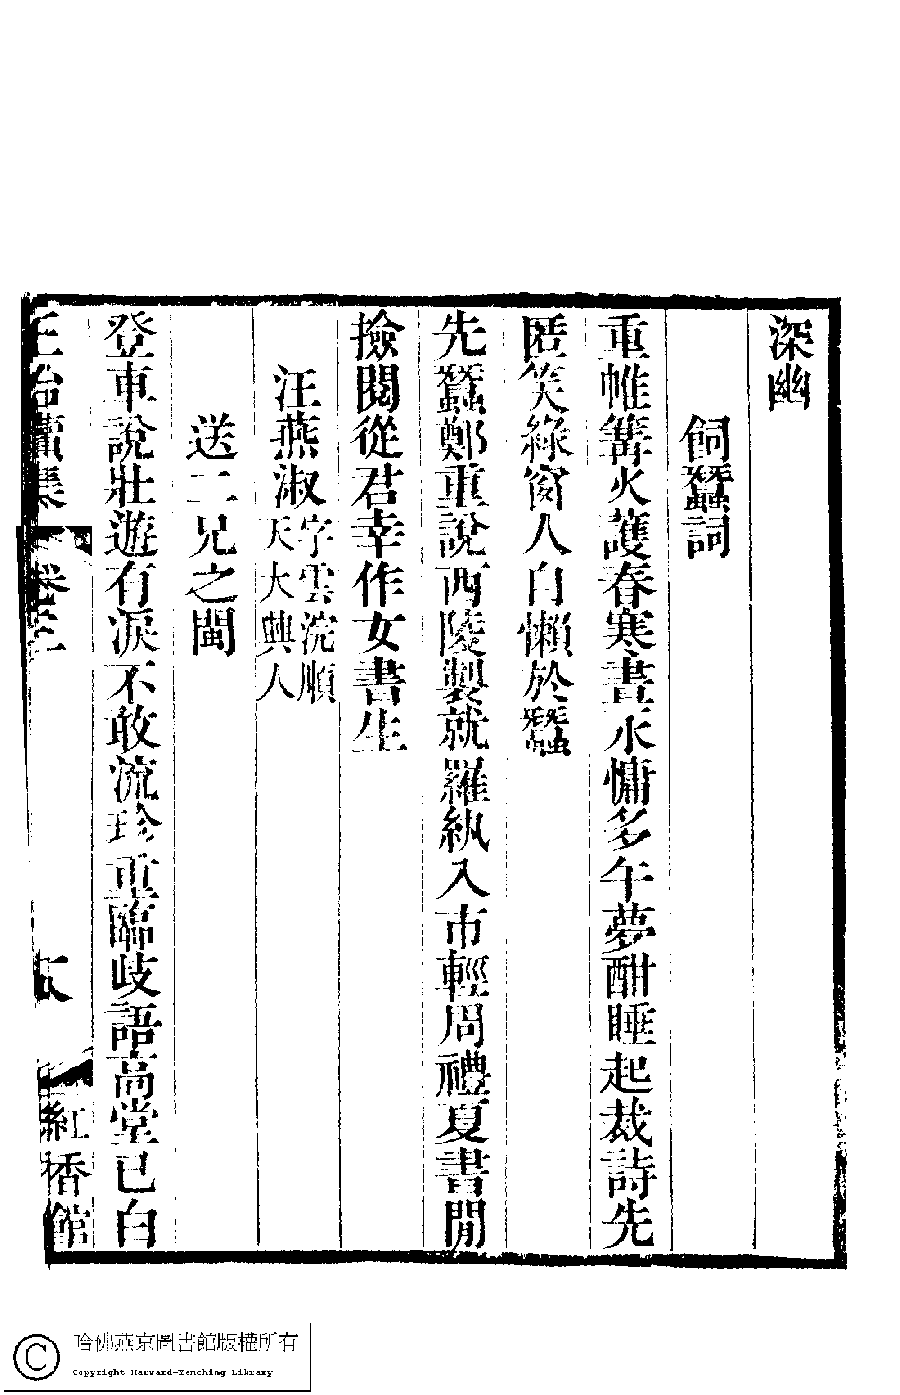 深幽
飼蠶詞
重帷篝火護春寒晝永慵多午夢酣睡起裁詩先
匿笑綠窗人自懶於蠶
先蠶鄭重說西陵製就羅紈入市輕周禮夏書閒
撿閱從君幸作女書生
汪燕淑字雲浣順天大興人
送二兄之閩
登車說壯遊有淚不敢流珍重臨歧語高堂已白
正始續集 卷三 紅香館
哈佛燕京圖書館版權所有
Copyright Harvard-Yenching Library